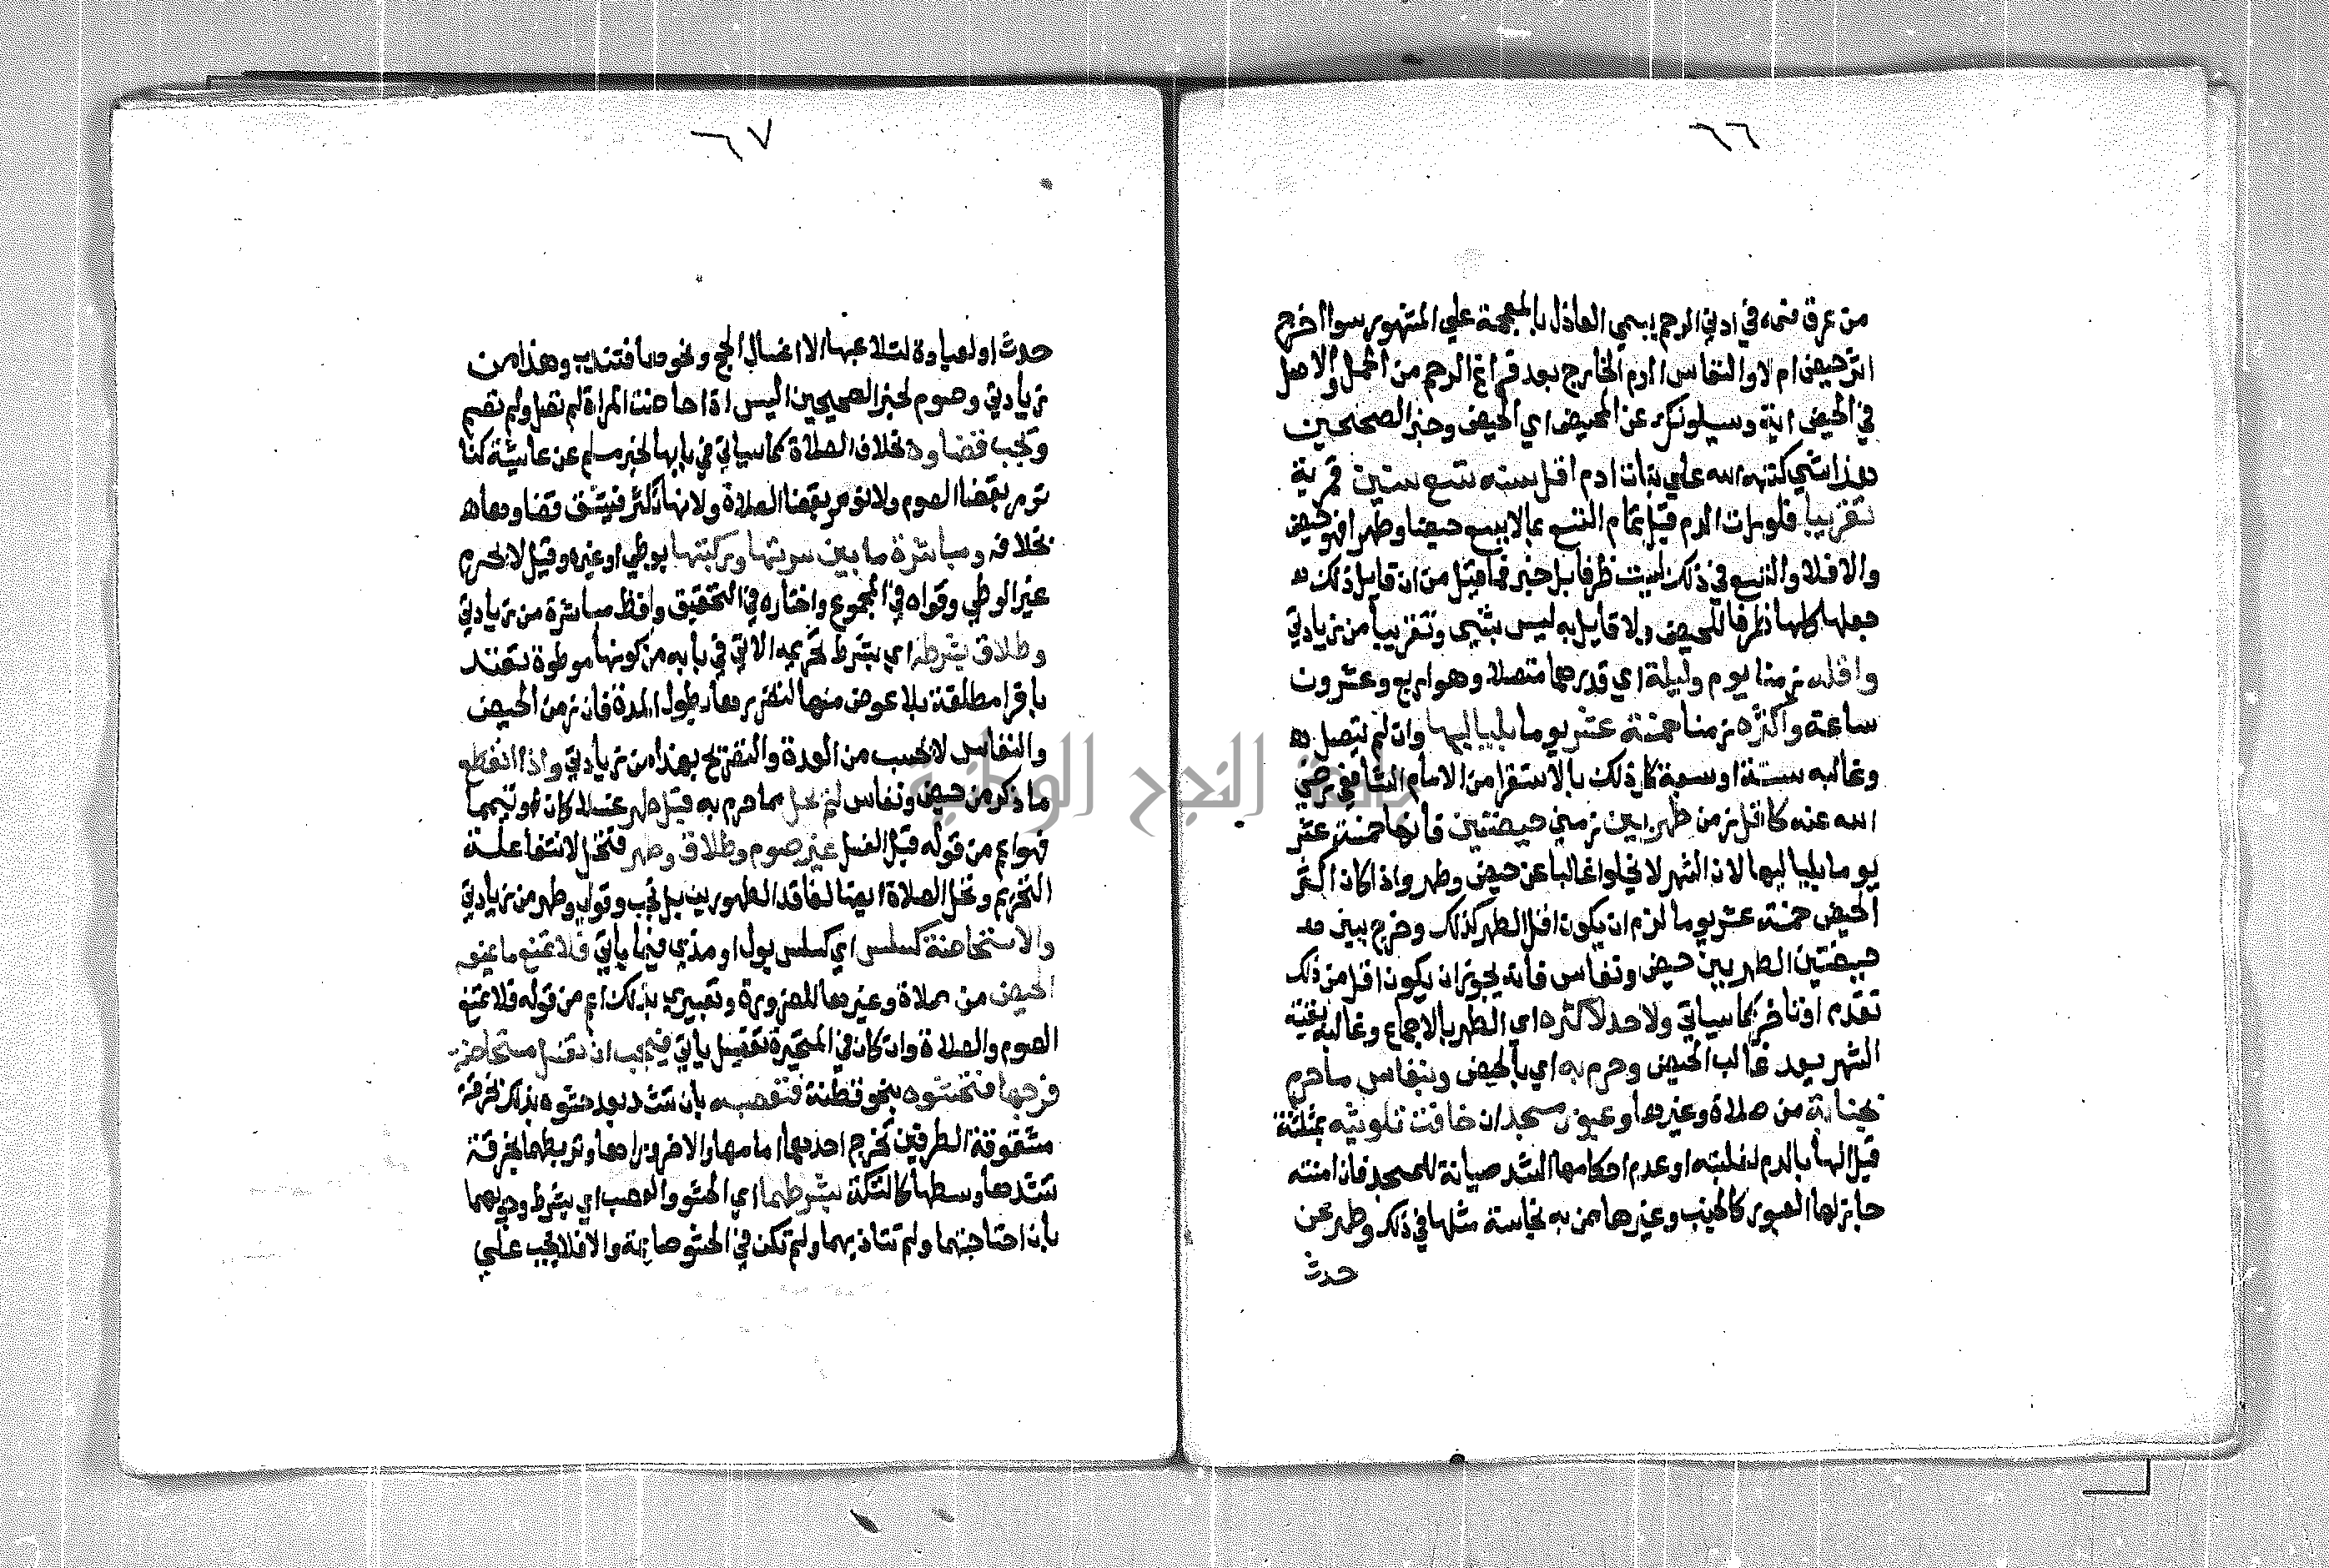 ٦٦
من عرق فمه في ادني الرحم يسمي العاذل بالمعجمة علي المشهور سوا اخرج
اثر حيض ام لا والنفاس الدم الخارج بعد فراغ الرحم من الحمل والاصل
في الحيض اية ويسيلونك عن المحيض اي الحيض وخبر الصحيحين
هذا شي كتبه الله علي بنات ادم اقل سنه تسع سنين قمرية
تقريبا فلو رات الدم قبل تمام التسع بما لا يسع حيضا وطهرا فهو حيض
والا فلا والتسع في ذلك ليست ظرفا بل خبر فما قيل من ان قايل ذلك
جعلها كلها ظرفا للحيض ولا قايل به ليس بشي وتقريبا من زيادتي
واقله زمنا يوم وليلة اي قدرهما متصلا وهو اربع وعشرون
ساعة واكثره زمنا خمسة عشر يوما بلياليها وان لم يتصل
وغالبه ستة او سبعة كل ذلك بالاستقرا من الامام الشافعي رضي
الله عنه كاقل زمن طهر بين زمني حيضتين فانها خمسة عشر
يوما بلياليها لان الشهر لا يخلوا غالبا عن حيض وطهر واذا كان اكثر
الحيض خمسة عشر يوما لزم ان يكون اقل الطهر كذلك وخرج ببين
حيضتين الطهر بين حيض ونفاس فانه يجوز ان يكون اقل من ذلك
تقدم او تاخر كما سياتي ولا حد لاكثره اي الطهر بالاجماع وغالبه بقية
الشهر بعد غالب الحيض وحرم به اي بالحيض وبنفاس ما حرم
بجنابة من صلاة وغيرها وعبور مسجد ان خافت تلويثه بمثلثة
قبل الها بالدم لغلبته او عدم احكامها الشد صيانة للمسجد فان امنته
جاز لها العبور كالجنب وغيرها ممن به نجاسة مثلها في ذلك وطهر عن
حدث
٦٧
حدث او لعبادة لتلاعبها الا اغسال الحج ونحوها فتندب وهذا من
زيادتي وصوم لخبر الصحيحين اليس اذا حاضت المراة لم تصل ولم تصم
وتجب قضاوه بخلاف الصلاة كما سياتي في بابها لخبر مسلم عن عايشة كنا
نومر بقضا الصوم ولا نومر بقضا الصلاة ولانها تكثر فيشق قضاوها
بخلافه ومباشرة ما بين سرتها وركبتها بوطي او غيره وقيل لا يحرم
غير الوطي وقواه في المجموع واختاره في التحقيق ولفظ مباشرة من زيادتي
وطلاق بشرطه اي بشرط تحريمه الاتي في بابه من كونها موطوة تعتد
باقرا مطلقة بلا عوض منها لتضررها بطول المدة فان زمن الحيض
والنفاس لا يحسب من العدة والتصريح بهذا من زيادتي واذا انقطع
ما ذكر من حيض ونفاس لم يحل مما حرم به قبل طهر غسلا كان او تيمما
فهو اعم من قوله قبل الغسل غير صوم وطلاق وطهر فتحل لانتفا علة
التحريم وتحل الصلاة ايضا لفاقد الطهورين بل تجب وقولي وطهر من زيادتي
والاستحاضة كسلس اي كسلس بول او مذي فيما ياتي فلا تمنع ما يمنعه
الحيض من صلاة وغيرها للضرورة وتعبيري بذلك اعم من قوله فلا تمنع
الصوم والصلاة وان كان في المتحيرة تفصيل ياتي فيجب ان تغسل مستحاضة
فرجها فتحشوه بنحو قطنة فتعصبه بان تشد بعد حشوه بذلك خرقة
مشقوقة الطرفين تخرج احدهما امامها والاخر وراها وتربطهما بخرقة
تشدها وسطها كالتكة بشرطهما اي الحشو والعصب اي بشرط وجوبهما
بان احتاجتهما ولم تتاذ بهما ولم تكن في الحشو صايمة والا فلا يجب علي